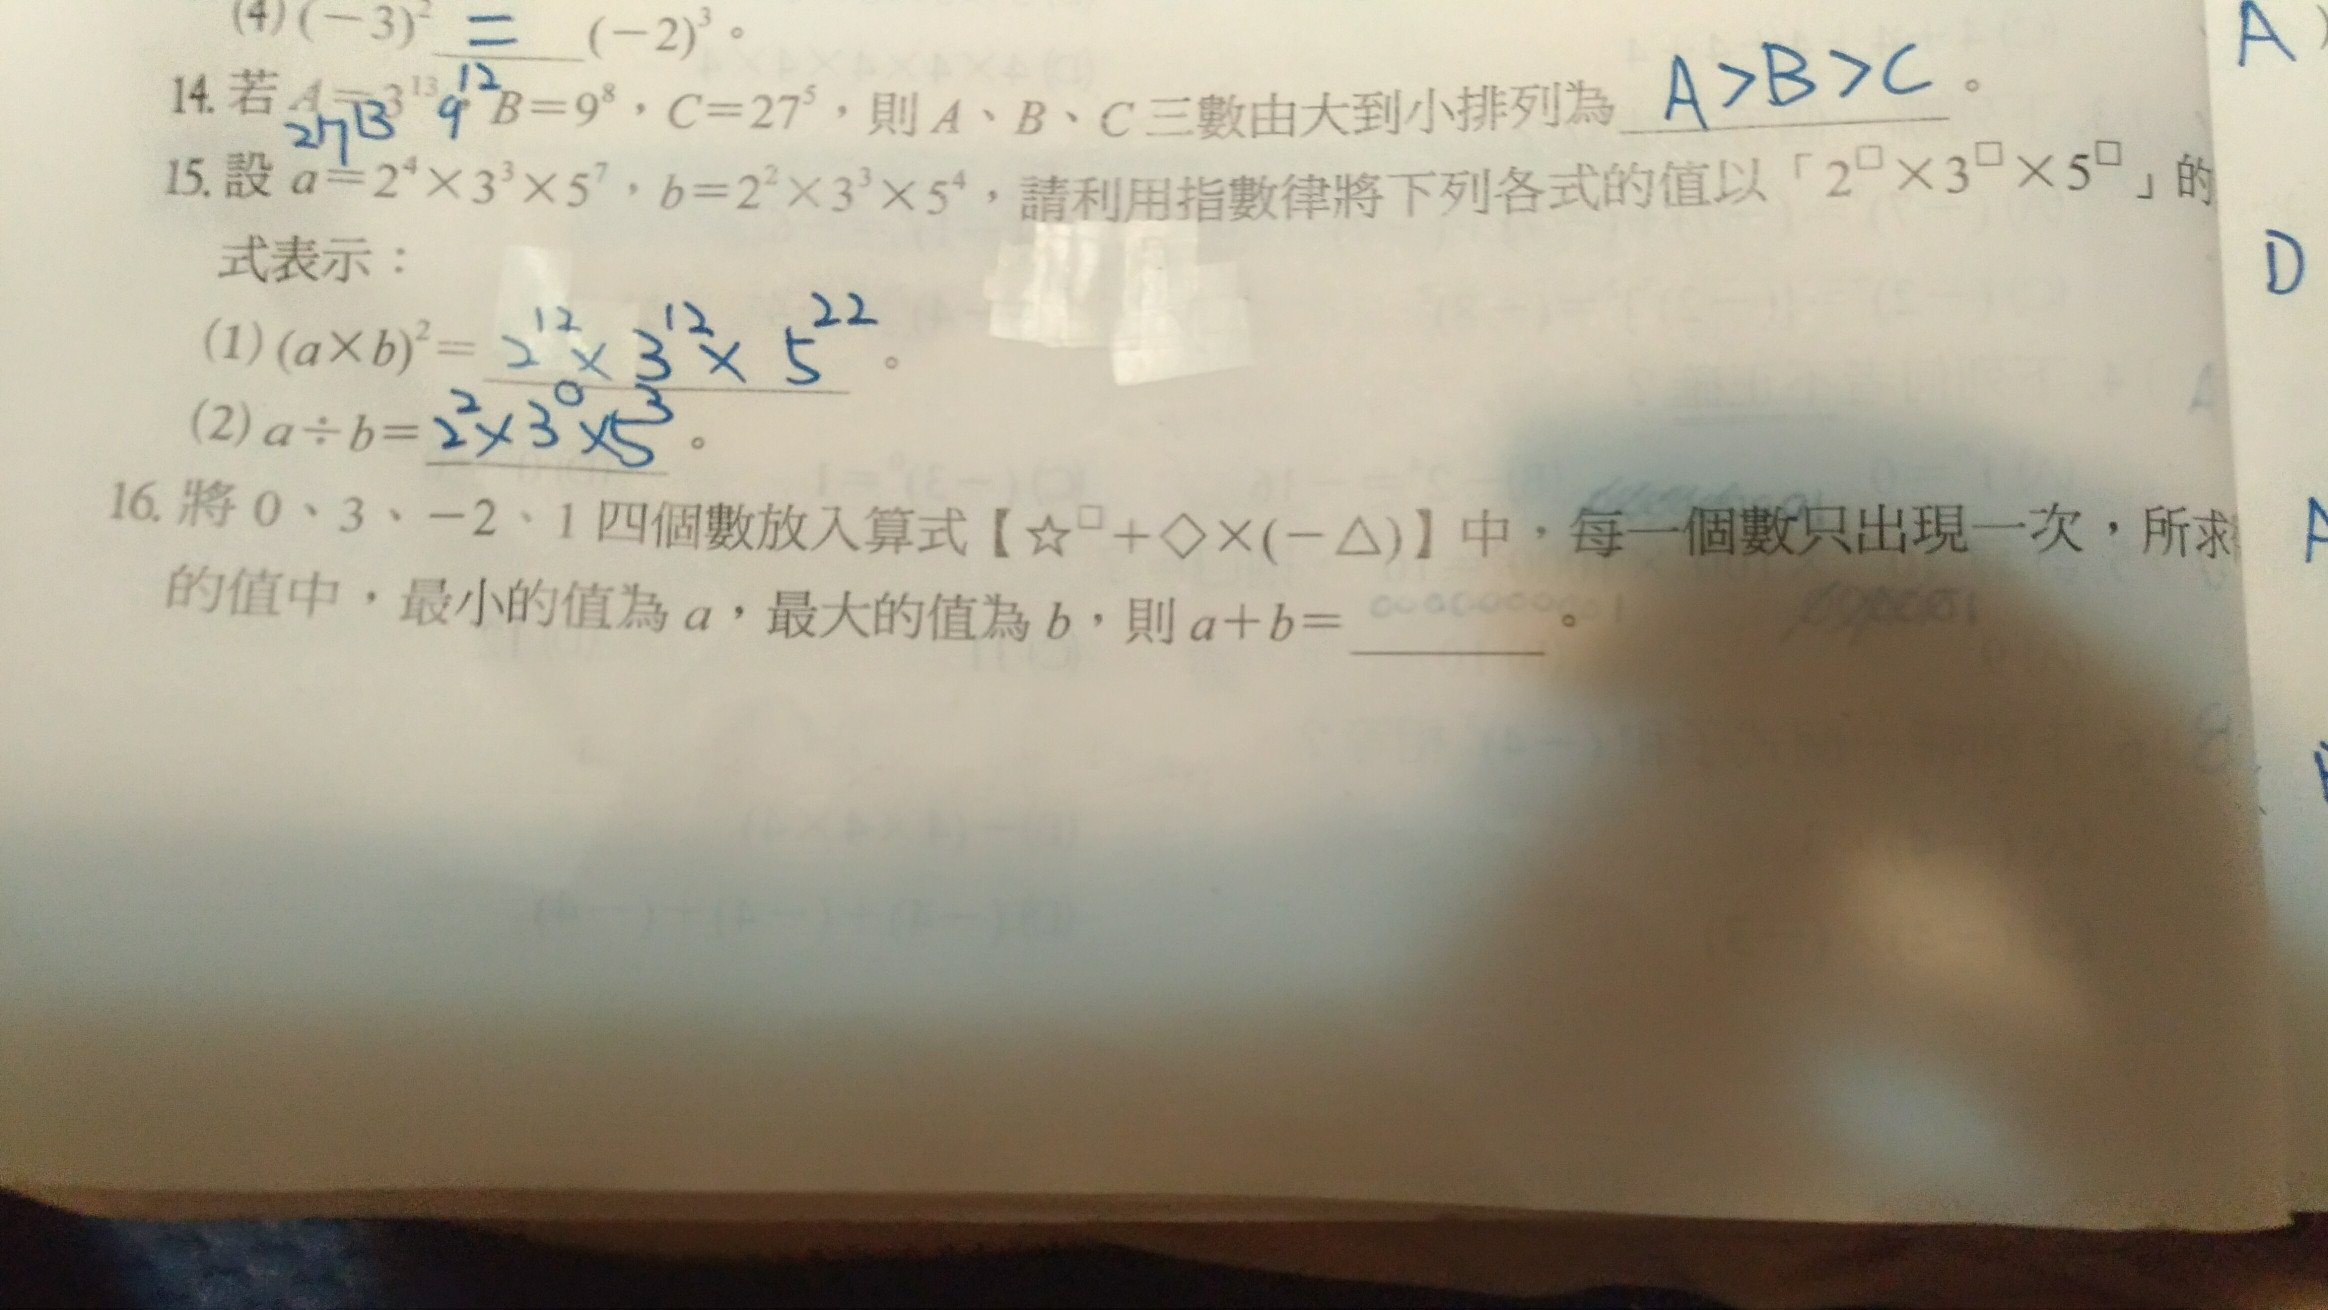 (4) (−3)² = (−2)³。
14. 若 A=3¹³，B=9⁸，C=27⁵，則 A、B、C 三數由大到小排列為 A>B>C。
27¹³ 9¹²
15. 設 a=2⁴×3³×5⁷，b=2²×3³×5⁴，請利用指數律將下列各式的值以「2□×3□×5□」的
式表示：
(1) (a×b)²= 2¹²×3¹²×5²²。
(2) a÷b= 2²×3⁰×5³。
16. 將 0、3、−2、1 四個數放入算式【☆□+◇×(−△)】中，每一個數只出現一次，所求
的值中，最小的值為 a，最大的值為 b，則 a+b=
。
A
D
A